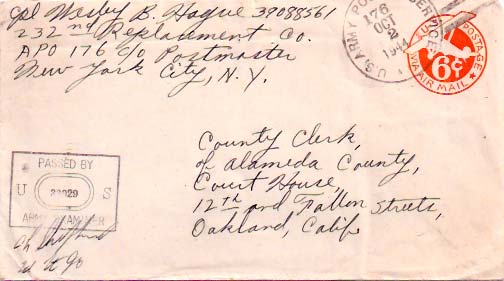 Cpl Wesley B. Hague 39088561
232nd Replacement Co.
APO 176 c/o Postmaster
New York City, N.Y.
U.S. ARMY POSTAL SERVICE
176
OCT
2
1944
U.S. POSTAGE
6¢
VIA AIR MAIL
County Clerk,
of Alameda County,
Court House,
12th and Fallon Streets,
Oakland, Calif.
PASSED BY
U S
ARMY EXAMINER